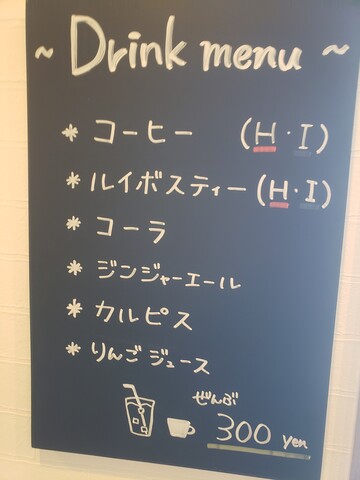 ~ Drink menu ~
* コーヒー (H・I)
* ルイボスティー (H・I)
* コーラ
* ジンジャーエール
* カルピス
* りんごジュース
ぜんぶ
300 yen